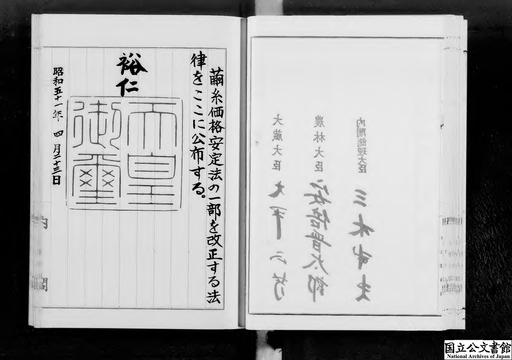 内閣総理大臣 三木武夫
農林大臣 安倍晋太郎
大蔵大臣 大平正芳
繭糸価格安定法の一部を改正する法
律をここに公布する。
裕仁
天皇
御璽
昭和五十一年 四月二十三日
国立公文書館
National Archives of Japan